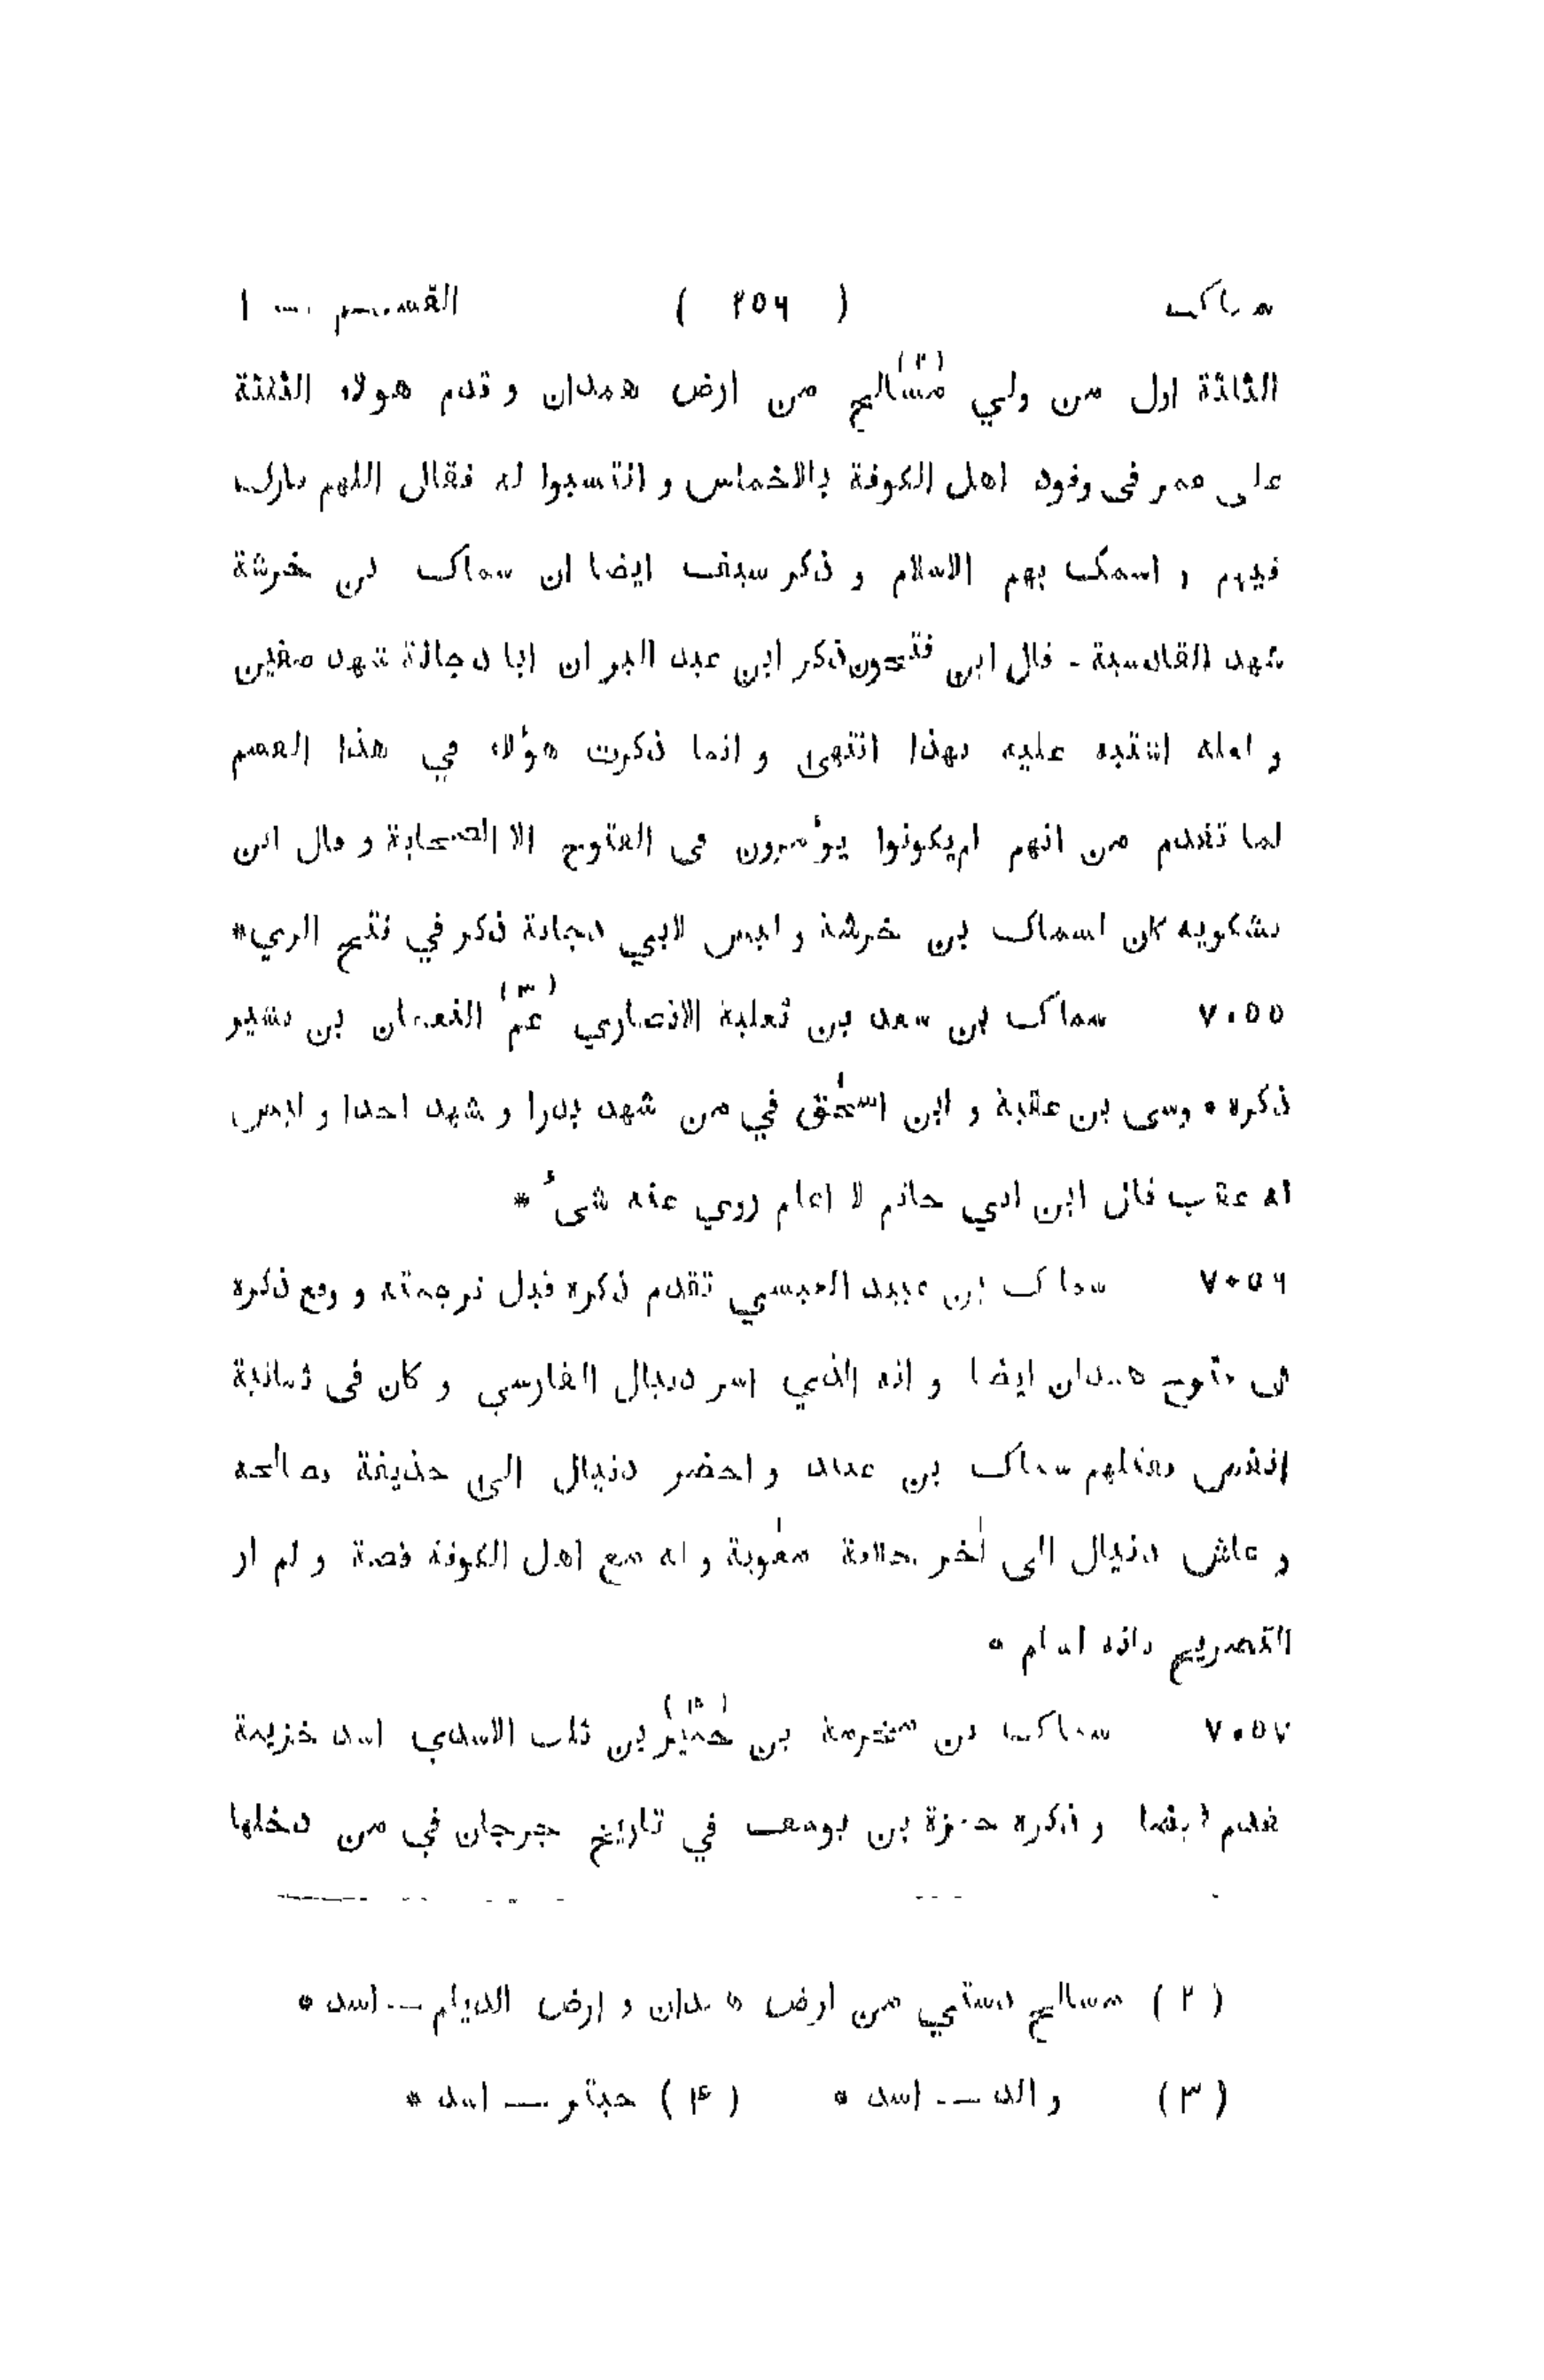 سماك ( ٢٥٦ ) القسم — ١
الثلثة اول من ولي مسالح (٢) من ارض همدان و قدم هولاء الثلثة
على عمر فى وفود اهل الكوفة بالاخماس و انتسبوا له فقال اللهم بارك
فيهم و اسمك بهم الاسلام و ذكر سيف ايضا ان سماك بن خرشة
شهد القادسية - قال ابن فتحون ذكر ابن عبد البر ان ابا دجانة شهد صفين
و لعله اشتبه عليه بهذا انتهى و انما ذكرت هؤلاء في هذا القسم
لما تقدم من انهم لم يكونوا يؤمرون فى الفتوح الا الصحابة و قال ابن
مشكويه كان اسماك بن خرشة و ليس لابي دجانة ذكر في فتح الري *
٧٠٥٥ سماك بن سعد بن ثعلبة الانصاري عمّ (٣) النعمان بن بشير
ذكره موسى بن عقبة و ابن اسحٰق في من شهد بدرا و شهد احدا و ليس
له عقب قال ابن ابي حاتم لا اعلم روي عنه شىء *
٧٠٥٦ سماك بن عبيد العبسي تقدم ذكره قبل ترجمته و وقع ذكره
فى فتوح همدان ايضا و انه الذي اسر دنيال الفارسي و كان فى ثمانية
انفس فقتلهم سماك بن عبيد و احضر دنيال الى حذيفة فصالحه
و عاش دنيال الى اٰخر خلافة معٰوية و له مع اهل الكوفة قصة و لم ار
التصريح بانه اسلم *
٧٠٥٧ سماك بن مخرمة بن حمير (۴) بن ثلب الاسدي اسد خزيمة
تقدم ايضا و ذكره حمزة بن يوسف في تاريخ جرجان في من دخلها
(٢) مسالح دستبي من ارض همدان و ارض الديلم — اسد *
(٣) والد — اسد * (۴) حبتر — اسد *